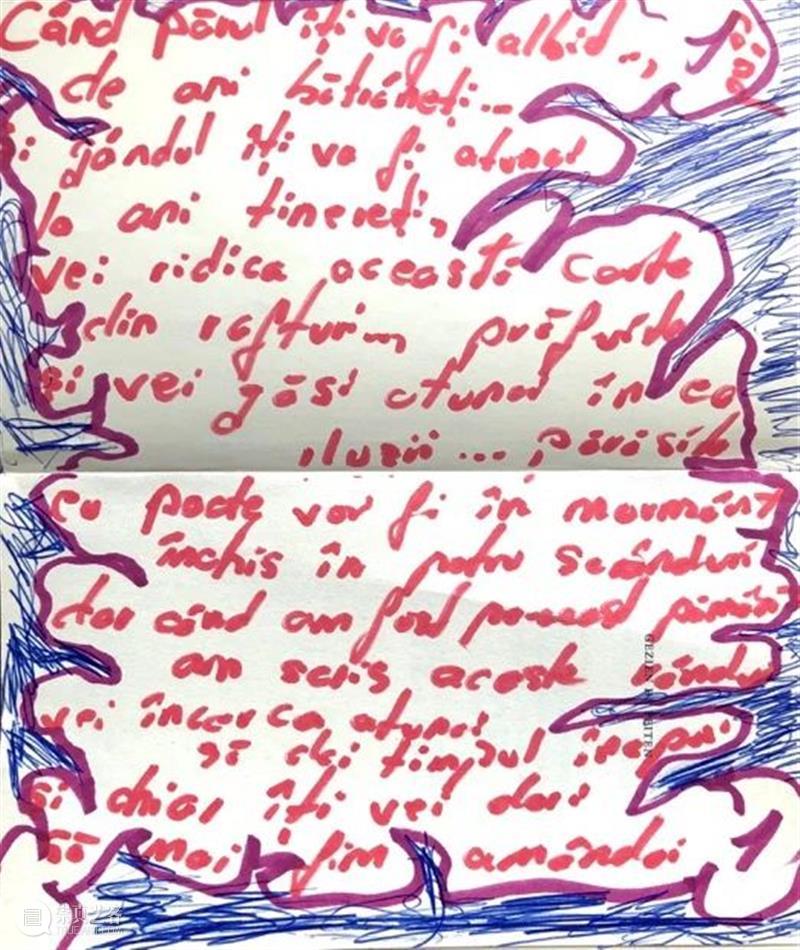 Când părul îți va fi albid..,
de ani bătrâneți...
și gândul îți va fi atunci
la ani tinereți,
vei ridica această carte
din rafturi.., prăfuite
și vei găsi atunci în ea
iluzii... părăsite
eu poate voi fi în mormânt
închis în patru scânduri
dar când am fost pământ
am scris aceste rânduri
vei încerca atunci
să dai timpul înapoi
și chiar îți vei dori
să mai fim amândoi
1
GEZIEN